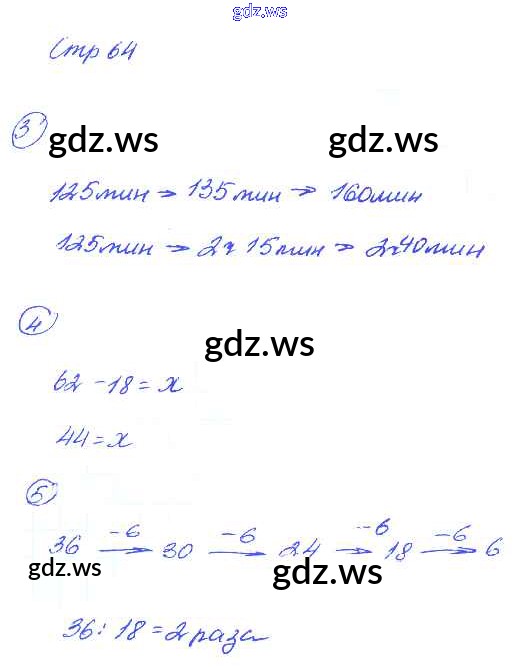 gdz.ws
Стр 64
3
gdz.ws gdz.ws
125мин → 135мин → 160мин
125мин → 2ч 15мин → 2ч40мин
4
gdz.ws
62 - 18 = x
44 = x
5
36 -6→ 30 -6→ 24 -6→ 18 -6→ 6
gdz.ws gdz.ws
36 : 18 = 2раза